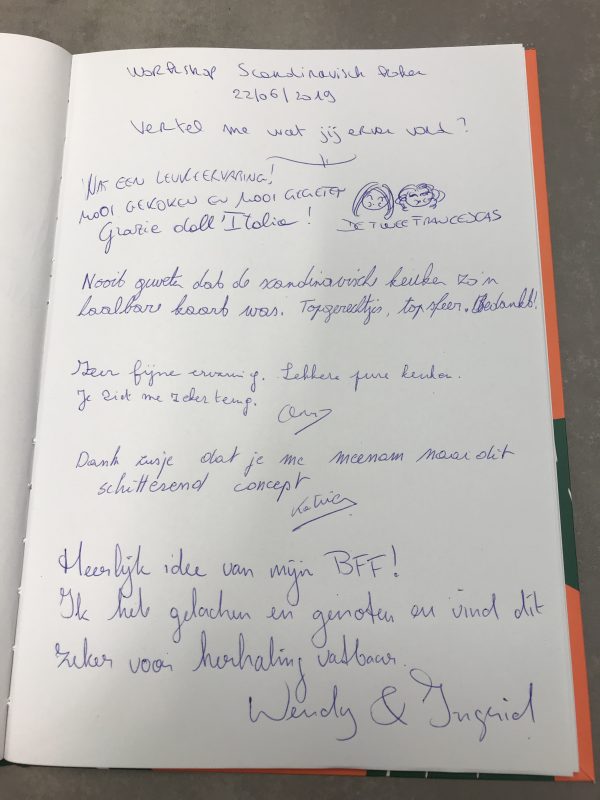 Workshop Scandinavisch koken
22/06/2019
Vertel me wat jij ervan vond?
WAT EEN LEUKE ERVARING!
MOOI GEKOKEN EN MOOI GEGETEN
Grazie dall'Italia!
DE TWEE FRANCESCAS
Nooit geweten dat de scandinavische keuken zo'n
haalbare kaart was. Topgerechtjes, topsfeer. Bedankt!
Zeer fijne ervaring. Lekkere pure keuken.
Je ziet me zeker terug.
Dank zusje dat je me meenam naar dit
schitterend concept
Katrien
Heerlijk idee van mijn BFF!
Ik heb gelachen en genoten en vind dit
zeker voor herhaling vatbaar.
Wendy & Ingrid